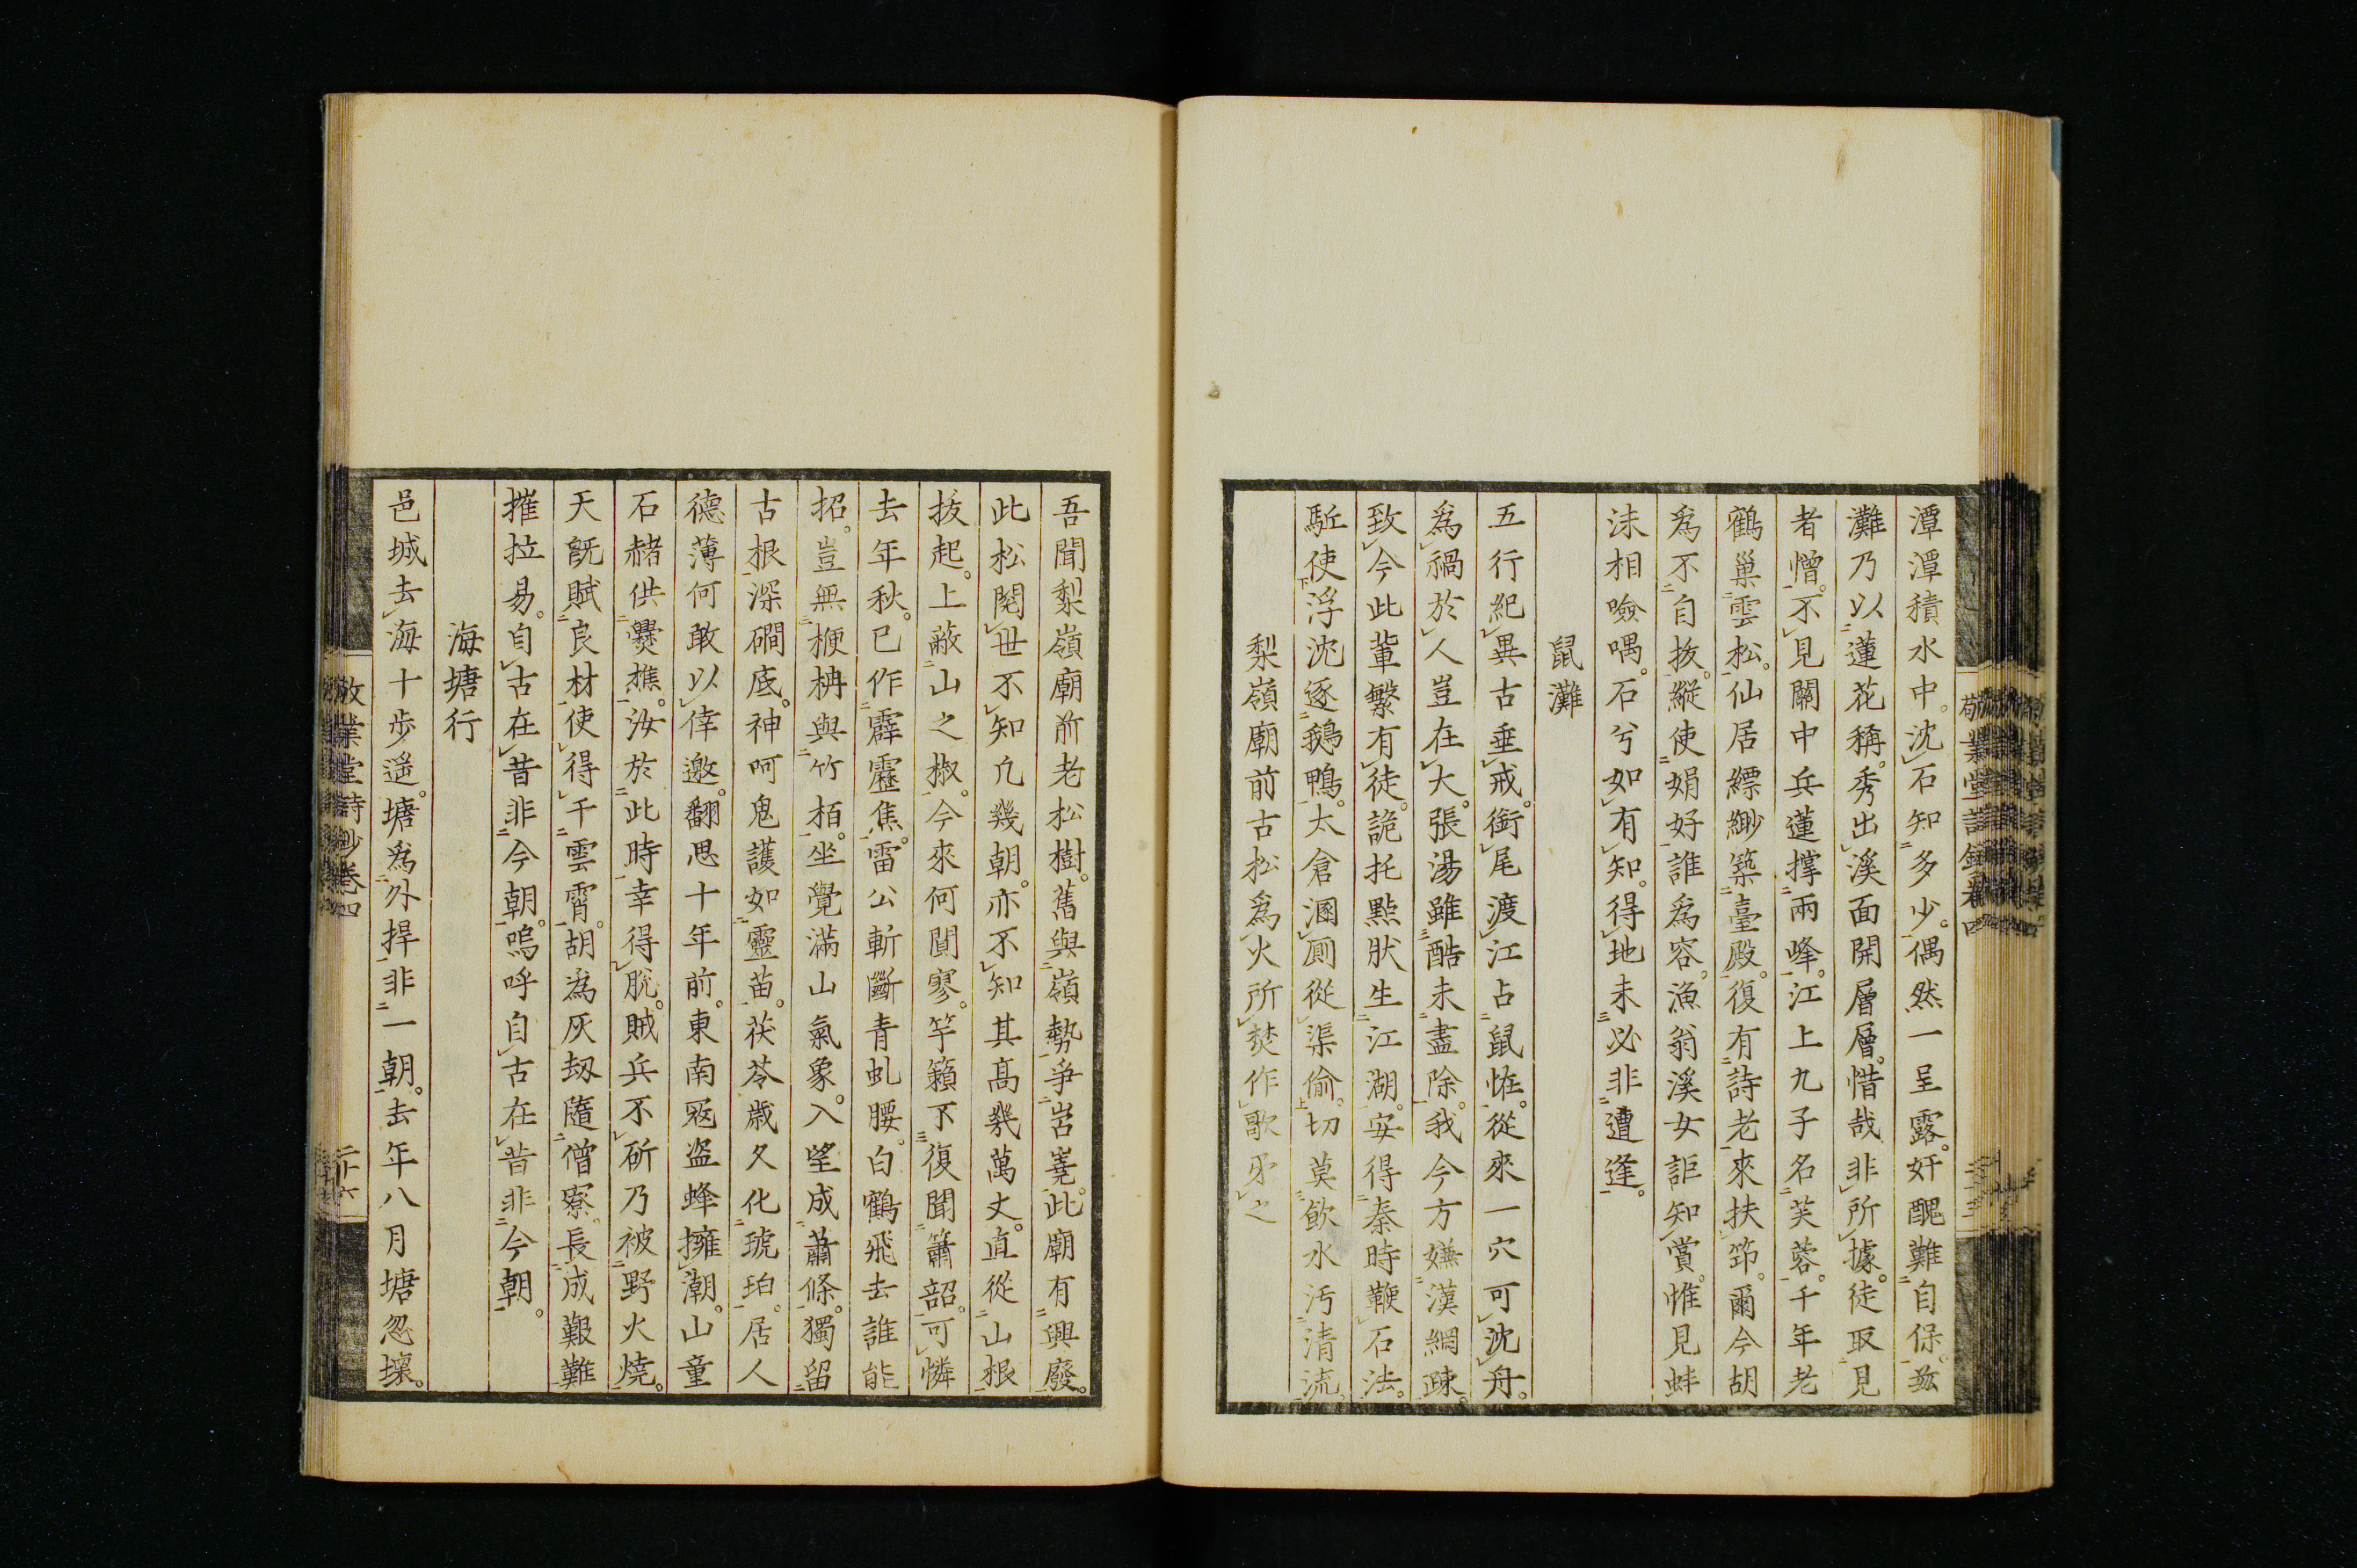 潭潭積水中。沈石知多少。偶然一呈露。奸醜難自保。茲
灘乃以蓮花稱。秀出溪面開層層。惜哉非所據。徒取見
者憎。不見關中兵蓮撑兩峰。江上九子名芙蓉。千年老
鶴巢雲松。仙居縹緲築臺殿。復有詩老來扶筇。爾今胡
爲不自拔。縱使娟好誰爲容。漁翁溪女詎知賞。惟見蚌
沫相噞喁。石兮如有知。得地未必非遭逢。
鼠灘
五行紀異古垂戒。銜尾渡江占鼠恠。從來一穴可沈舟。
爲禍於人豈在大。張湯雖酷未盡除。我今方嫌漢網疎。
致今此輩繁有徒。詭托㸃狀生江湖。安得秦時鞭石法。
駈使浮沈逐鵝鴨。太倉溷厠從渠偷。切莫飲水汚清流。
梨嶺廟前古松爲火所焚作歌弔之
吾聞梨嶺廟前老松樹。舊與嶺勢爭岧嶤。此廟有興廢。
此松閱世不知凢幾朝。亦不知其髙幾萬丈。直從山根
拔起。上蔽山之椒。今來何闃寥。竽籟不復聞簫韶。可憐
去年秋。已作霹靂焦。雷公斬斷青虬腰。白鶴飛去誰能
招。豈無楩柟與竹栢。坐覺滿山氣象。入望成蕭條。獨留
古根深磵底。神呵鬼護如靈苗。茯苓歳久化琥珀。居人
德薄何敢以倖邀。翻思十年前。東南冦盜蜂擁潮。山童
石赭供爨樵。汝於此時幸得脫。賊兵不斫乃被野火燒。
天旣賦良材。使得千雲霄。胡爲灰刼隨僧寮。長成艱難
摧拉易。自古在昔非今朝。嗚呼自古在昔非今朝。
海塘行
邑城去海十步遥。塘爲外捍非一朝。去年八月塘忽壞。
敬業堂詩鈔卷四
二十六